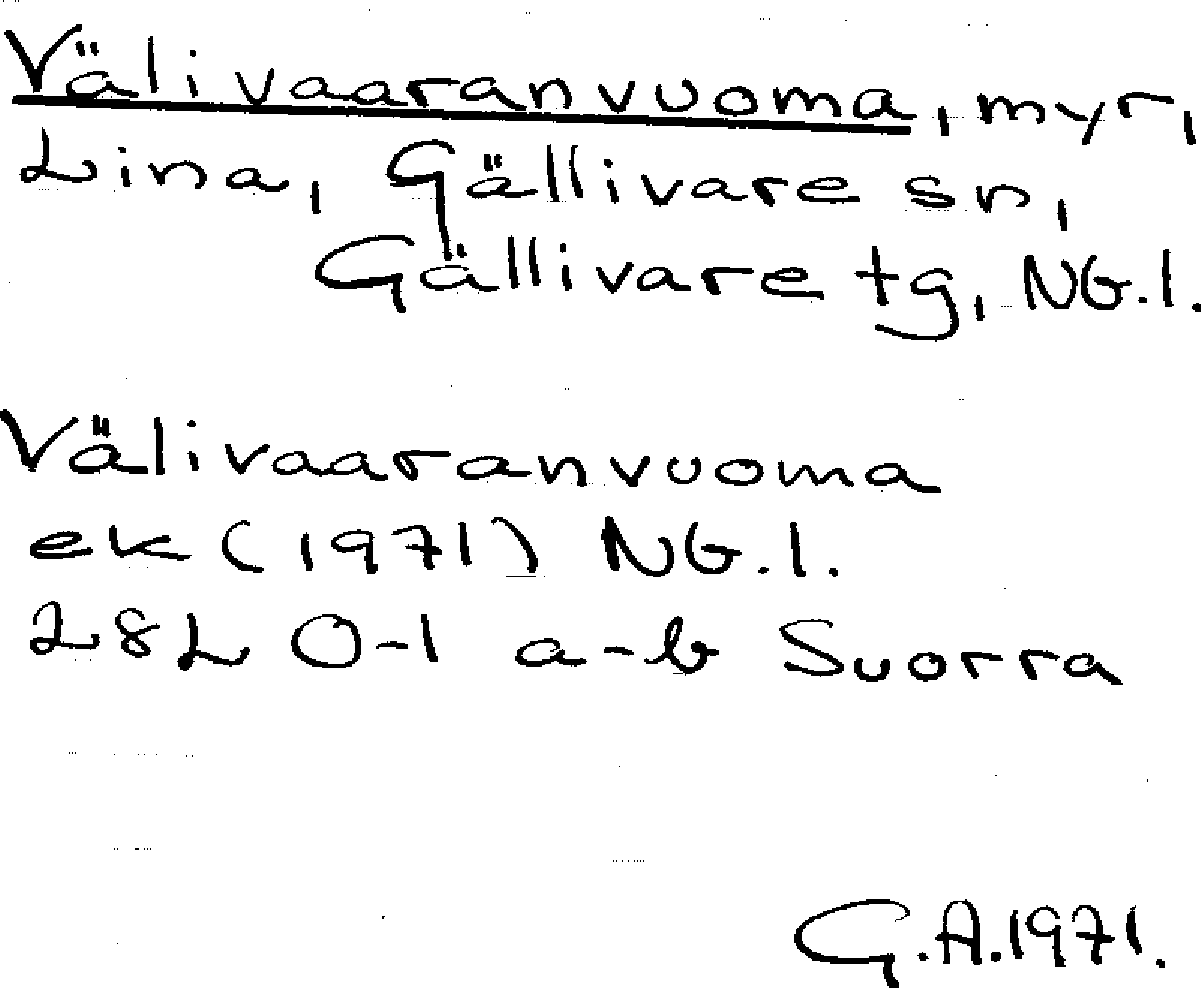 Välivaaranvuoma, myr,
Lina, Gällivare sn,
Gällivare tg, NG.l.
Välivaaranvuoma
ek (1971) NG.l.
28L 0-1 a-b Suorra
G.A.1971.